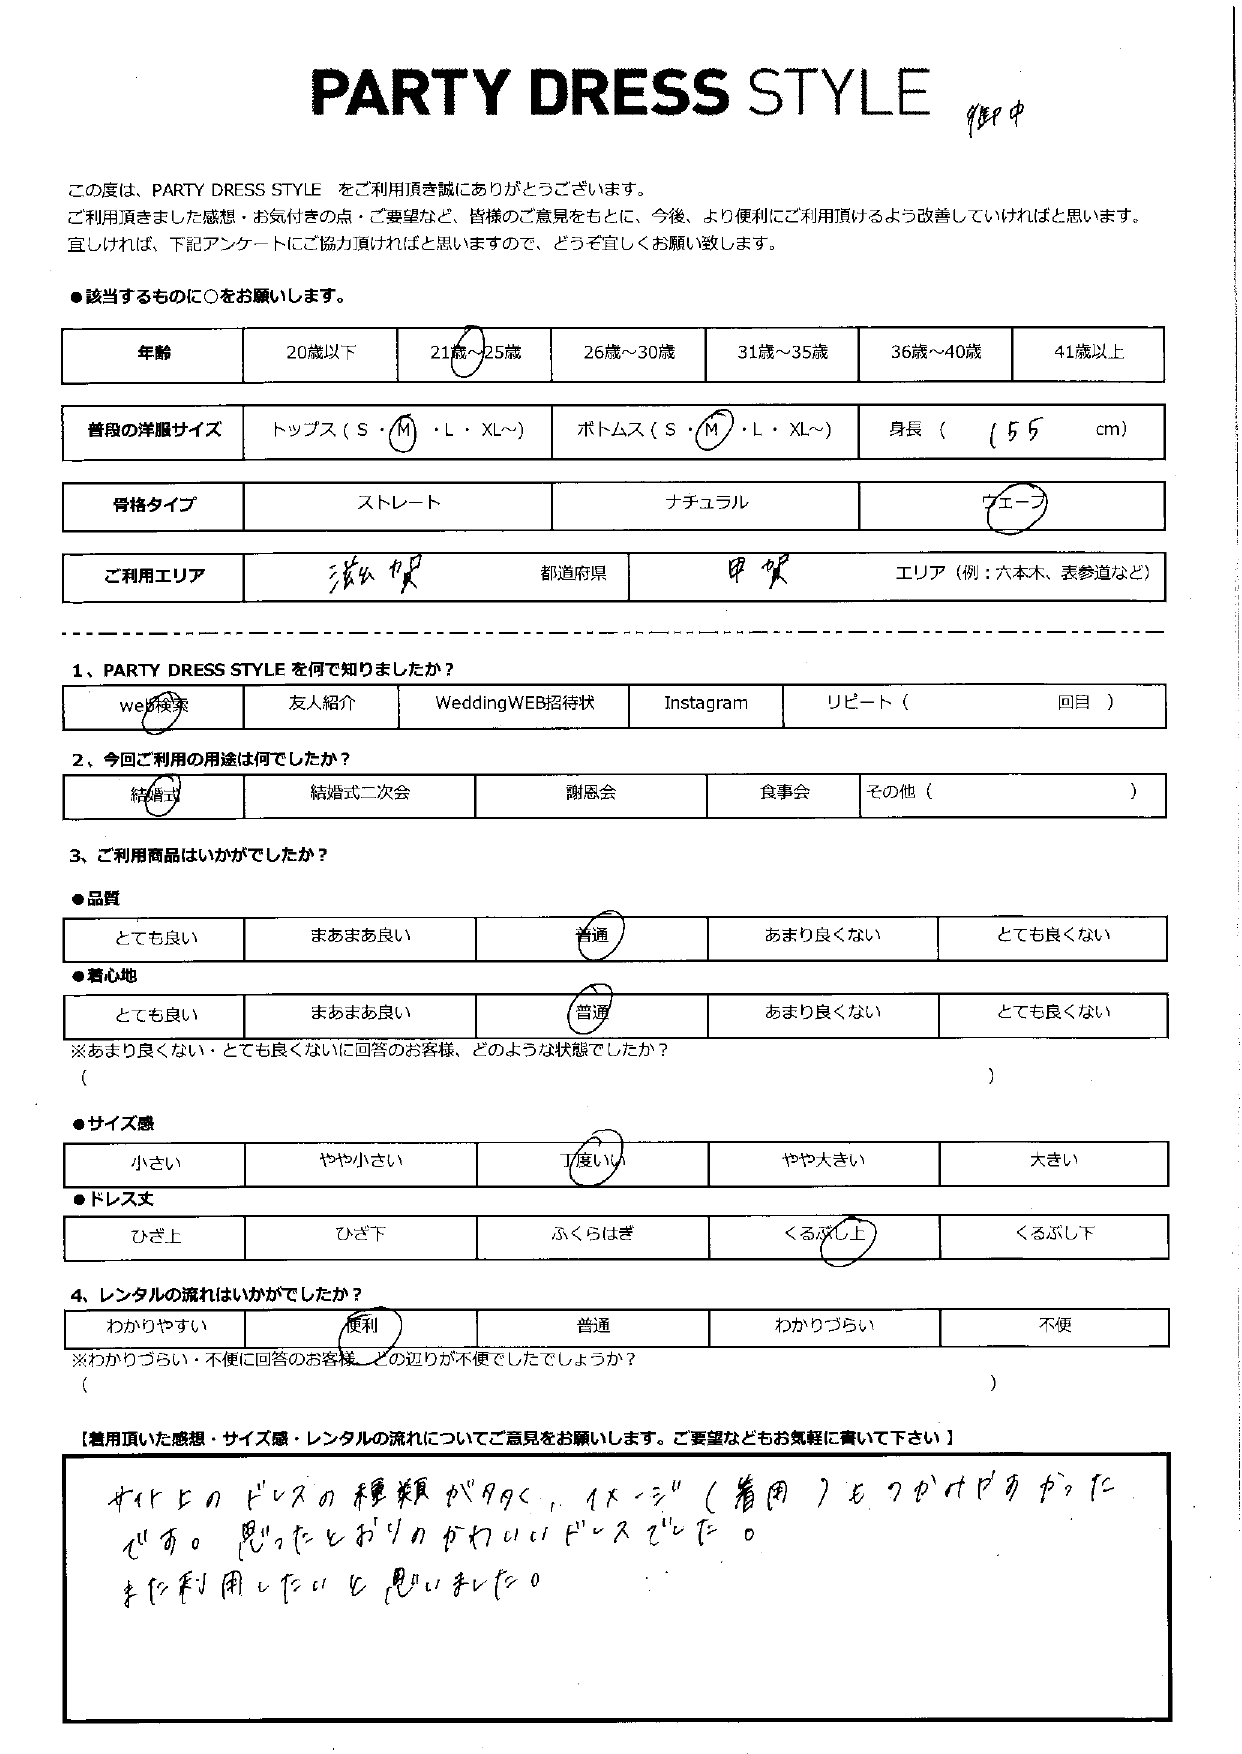 PARTY DRESS STYLE 御中
この度は、PARTY DRESS STYLE をご利用頂き誠にありがとうございます。
ご利用頂きました感想・お気付きの点・ご要望など、皆様のご意見をもとに、今後、より便利にご利用頂けるよう改善していければと思います。
宜しければ、下記アンケートにご協力頂ければと思いますので、どうぞ宜しくお願い致します。
●該当するものに○をお願いします。
年齢 20歳以下 21歳～25歳 26歳～30歳 31歳～35歳 36歳～40歳 41歳以上
普段の洋服サイズ トップス ( S ・ M ・L ・ XL～) ボトムス ( S ・ M ・L ・ XL～) 身長 ( 155 cm)
骨格タイプ ストレート ナチュラル ウェーブ
ご利用エリア 滋賀 都道府県 甲賀 エリア（例：六本木、表参道など）
1、PARTY DRESS STYLE を何で知りましたか？
web検索 友人紹介 WeddingWEB招待状 Instagram リピート（ 回目 ）
2、今回ご利用の用途は何でしたか？
結婚式 結婚式二次会 謝恩会 食事会 その他（ ）
3、ご利用商品はいかがでしたか？
●品質
とても良い まあまあ良い 普通 あまり良くない とても良くない
●着心地
とても良い まあまあ良い 普通 あまり良くない とても良くない
※あまり良くない・とても良くないに回答のお客様、どのような状態でしたか？
( )
●サイズ感
小さい やや小さい 丁度いい やや大きい 大きい
●ドレス丈
ひざ上 ひざ下 ふくらはぎ くるぶし上 くるぶし下
4、レンタルの流れはいかがでしたか？
わかりやすい 便利 普通 わかりづらい 不便
※わかりづらい・不便に回答のお客様、どの辺りが不便でしたでしょうか？
( )
【着用頂いた感想・サイズ感・レンタルの流れについてご意見をお願いします。ご要望などもお気軽に書いて下さい 】
サイト上のドレスの種類が多く、イメージ(着用)もつかみやすかった
です。思ったとおりのかわいいドレスでした。
また利用したいと思いました。